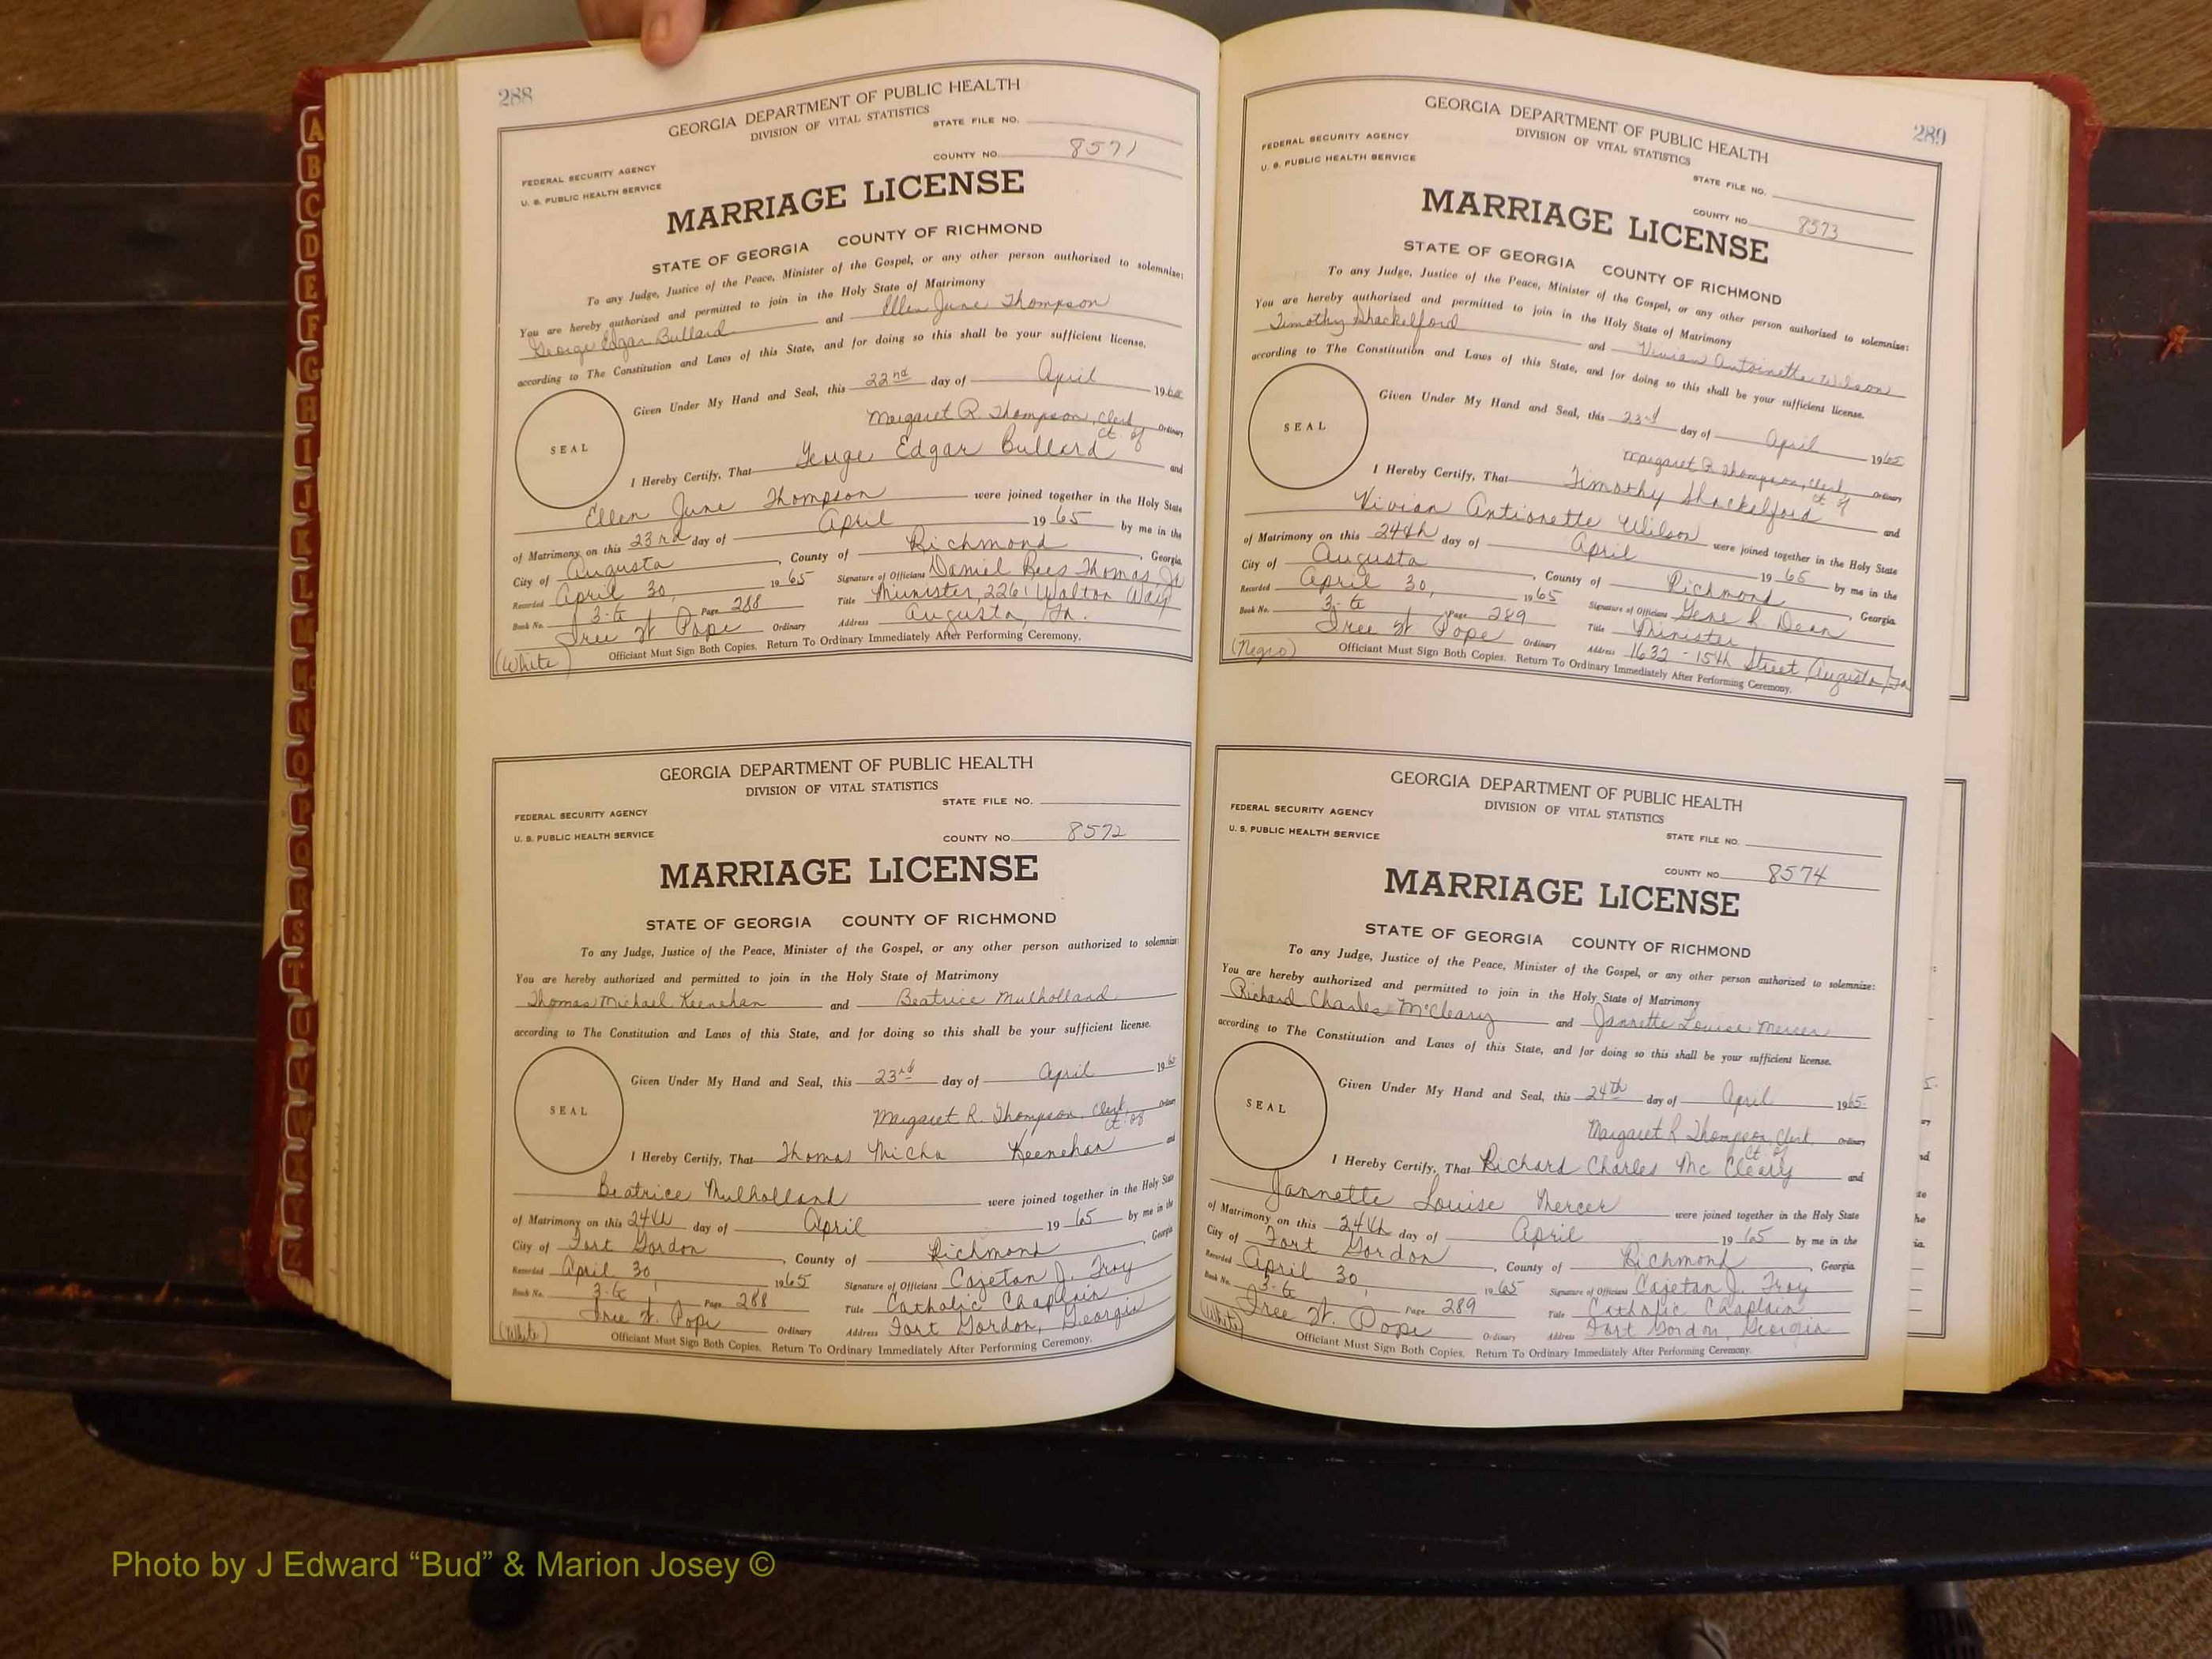 288
GEORGIA DEPARTMENT OF PUBLIC HEALTH
DIVISION OF VITAL STATISTICS
STATE FILE NO.
FEDERAL SECURITY AGENCY
U. S. PUBLIC HEALTH SERVICE
COUNTY NO. 8571
MARRIAGE LICENSE
STATE OF GEORGIA COUNTY OF RICHMOND
To any Judge, Justice of the Peace, Minister of the Gospel, or any other person authorized to solemnize:
You are hereby authorized and permitted to join in the Holy State of Matrimony
George Edgar Bullard and Ellen June Thompson
according to The Constitution and Laws of this State, and for doing so this shall be your sufficient license.
SEAL
Given Under My Hand and Seal, this 22nd day of April 1965
Margaret R. Thompson, Clerk Ordinary
Ct. of
I Hereby Certify, That George Edgar Bullard and
Ellen June Thompson were joined together in the Holy State
of Matrimony on this 23rd day of April 1965 by me in the
City of Augusta, County of Richmond, Georgia
Recorded April 30, 1965 Signature of Officiant Daniel Rees Thomas, Jr
Book No. 3-G Page 288 Title Minister, 2261 Walton Way
Ordinary Address Augusta, Ga.
Officiant Must Sign Both Copies. Return To Ordinary Immediately After Performing Ceremony.
(White)
GEORGIA DEPARTMENT OF PUBLIC HEALTH
DIVISION OF VITAL STATISTICS
STATE FILE NO.
FEDERAL SECURITY AGENCY
U. S. PUBLIC HEALTH SERVICE
COUNTY NO. 8572
MARRIAGE LICENSE
STATE OF GEORGIA COUNTY OF RICHMOND
To any Judge, Justice of the Peace, Minister of the Gospel, or any other person authorized to solemnize:
You are hereby authorized and permitted to join in the Holy State of Matrimony
Thomas Michael Keenehan and Beatrice Mulholland
according to The Constitution and Laws of this State, and for doing so this shall be your sufficient license.
SEAL
Given Under My Hand and Seal, this 23rd day of April 1965
Margaret R. Thompson, Clerk, Ordinary
Ct. of
I Hereby Certify, That Thomas Micha Keenehan and
Beatrice Mulholland were joined together in the Holy State
of Matrimony on this 24th day of April 1965 by me in the
City of Fort Gordon, County of Richmond, Georgia
Recorded April 30, 1965 Signature of Officiant Cajetan J. Troy
Book No. 3-G Page 288 Title Catholic Chaplain
Ordinary Address Fort Gordon, Georgia
Officiant Must Sign Both Copies. Return To Ordinary Immediately After Performing Ceremony.
(White)
289
GEORGIA DEPARTMENT OF PUBLIC HEALTH
DIVISION OF VITAL STATISTICS
FEDERAL SECURITY AGENCY
U. S. PUBLIC HEALTH SERVICE
STATE FILE NO.
COUNTY NO. 8573
MARRIAGE LICENSE
STATE OF GEORGIA COUNTY OF RICHMOND
To any Judge, Justice of the Peace, Minister of the Gospel, or any other person authorized to solemnize:
You are hereby authorized and permitted to join in the Holy State of Matrimony
Timothy Shackelford and Vivian Antoinette Wilson
according to The Constitution and Laws of this State, and for doing so this shall be your sufficient license.
SEAL
Given Under My Hand and Seal, this 23rd day of April 1965
Margaret R. Thompson, Clerk Ordinary
Ct. of
I Hereby Certify, That Timothy Shackelford and
Vivian Antionette Wilson were joined together in the Holy State
of Matrimony on this 24th day of April 1965 by me in the
City of Augusta, County of Richmond, Georgia
Recorded April 30, 1965 Signature of Officiant Gene R. Dean
Book No. 3-G Page 289 Title Minister
Ordinary Address 1632 - 15th Street, Augusta, Ga
Officiant Must Sign Both Copies. Return To Ordinary Immediately After Performing Ceremony.
(Negro)
GEORGIA DEPARTMENT OF PUBLIC HEALTH
DIVISION OF VITAL STATISTICS
FEDERAL SECURITY AGENCY
U. S. PUBLIC HEALTH SERVICE
STATE FILE NO.
COUNTY NO. 8574
MARRIAGE LICENSE
STATE OF GEORGIA COUNTY OF RICHMOND
To any Judge, Justice of the Peace, Minister of the Gospel, or any other person authorized to solemnize:
You are hereby authorized and permitted to join in the Holy State of Matrimony
Richard Charles McCleary and Jannette Louise Mercer
according to The Constitution and Laws of this State, and for doing so this shall be your sufficient license.
SEAL
Given Under My Hand and Seal, this 24th day of April 1965
Margaret R Thompson, Clerk, Ordinary
Ct. of
I Hereby Certify, That Richard Charles Mc Cleary and
Jannette Louise Mercer were joined together in the Holy State
of Matrimony on this 24th day of April 1965 by me in the
City of Fort Gordon, County of Richmond, Georgia
Recorded April 30, 1965 Signature of Officiant Cajetan J. Troy
Book No. 3-G Page 289 Title Catholic Chaplain
Ordinary Address Fort Gordon, Georgia
Officiant Must Sign Both Copies. Return To Ordinary Immediately After Performing Ceremony.
(White)
A
B
C
D
E
F
G
H
I
J
K
L
M
Mc
N
O
P
Q
R
S
T
U
V
W
X
Y
Z
Photo by J Edward “Bud” & Marion Josey ©